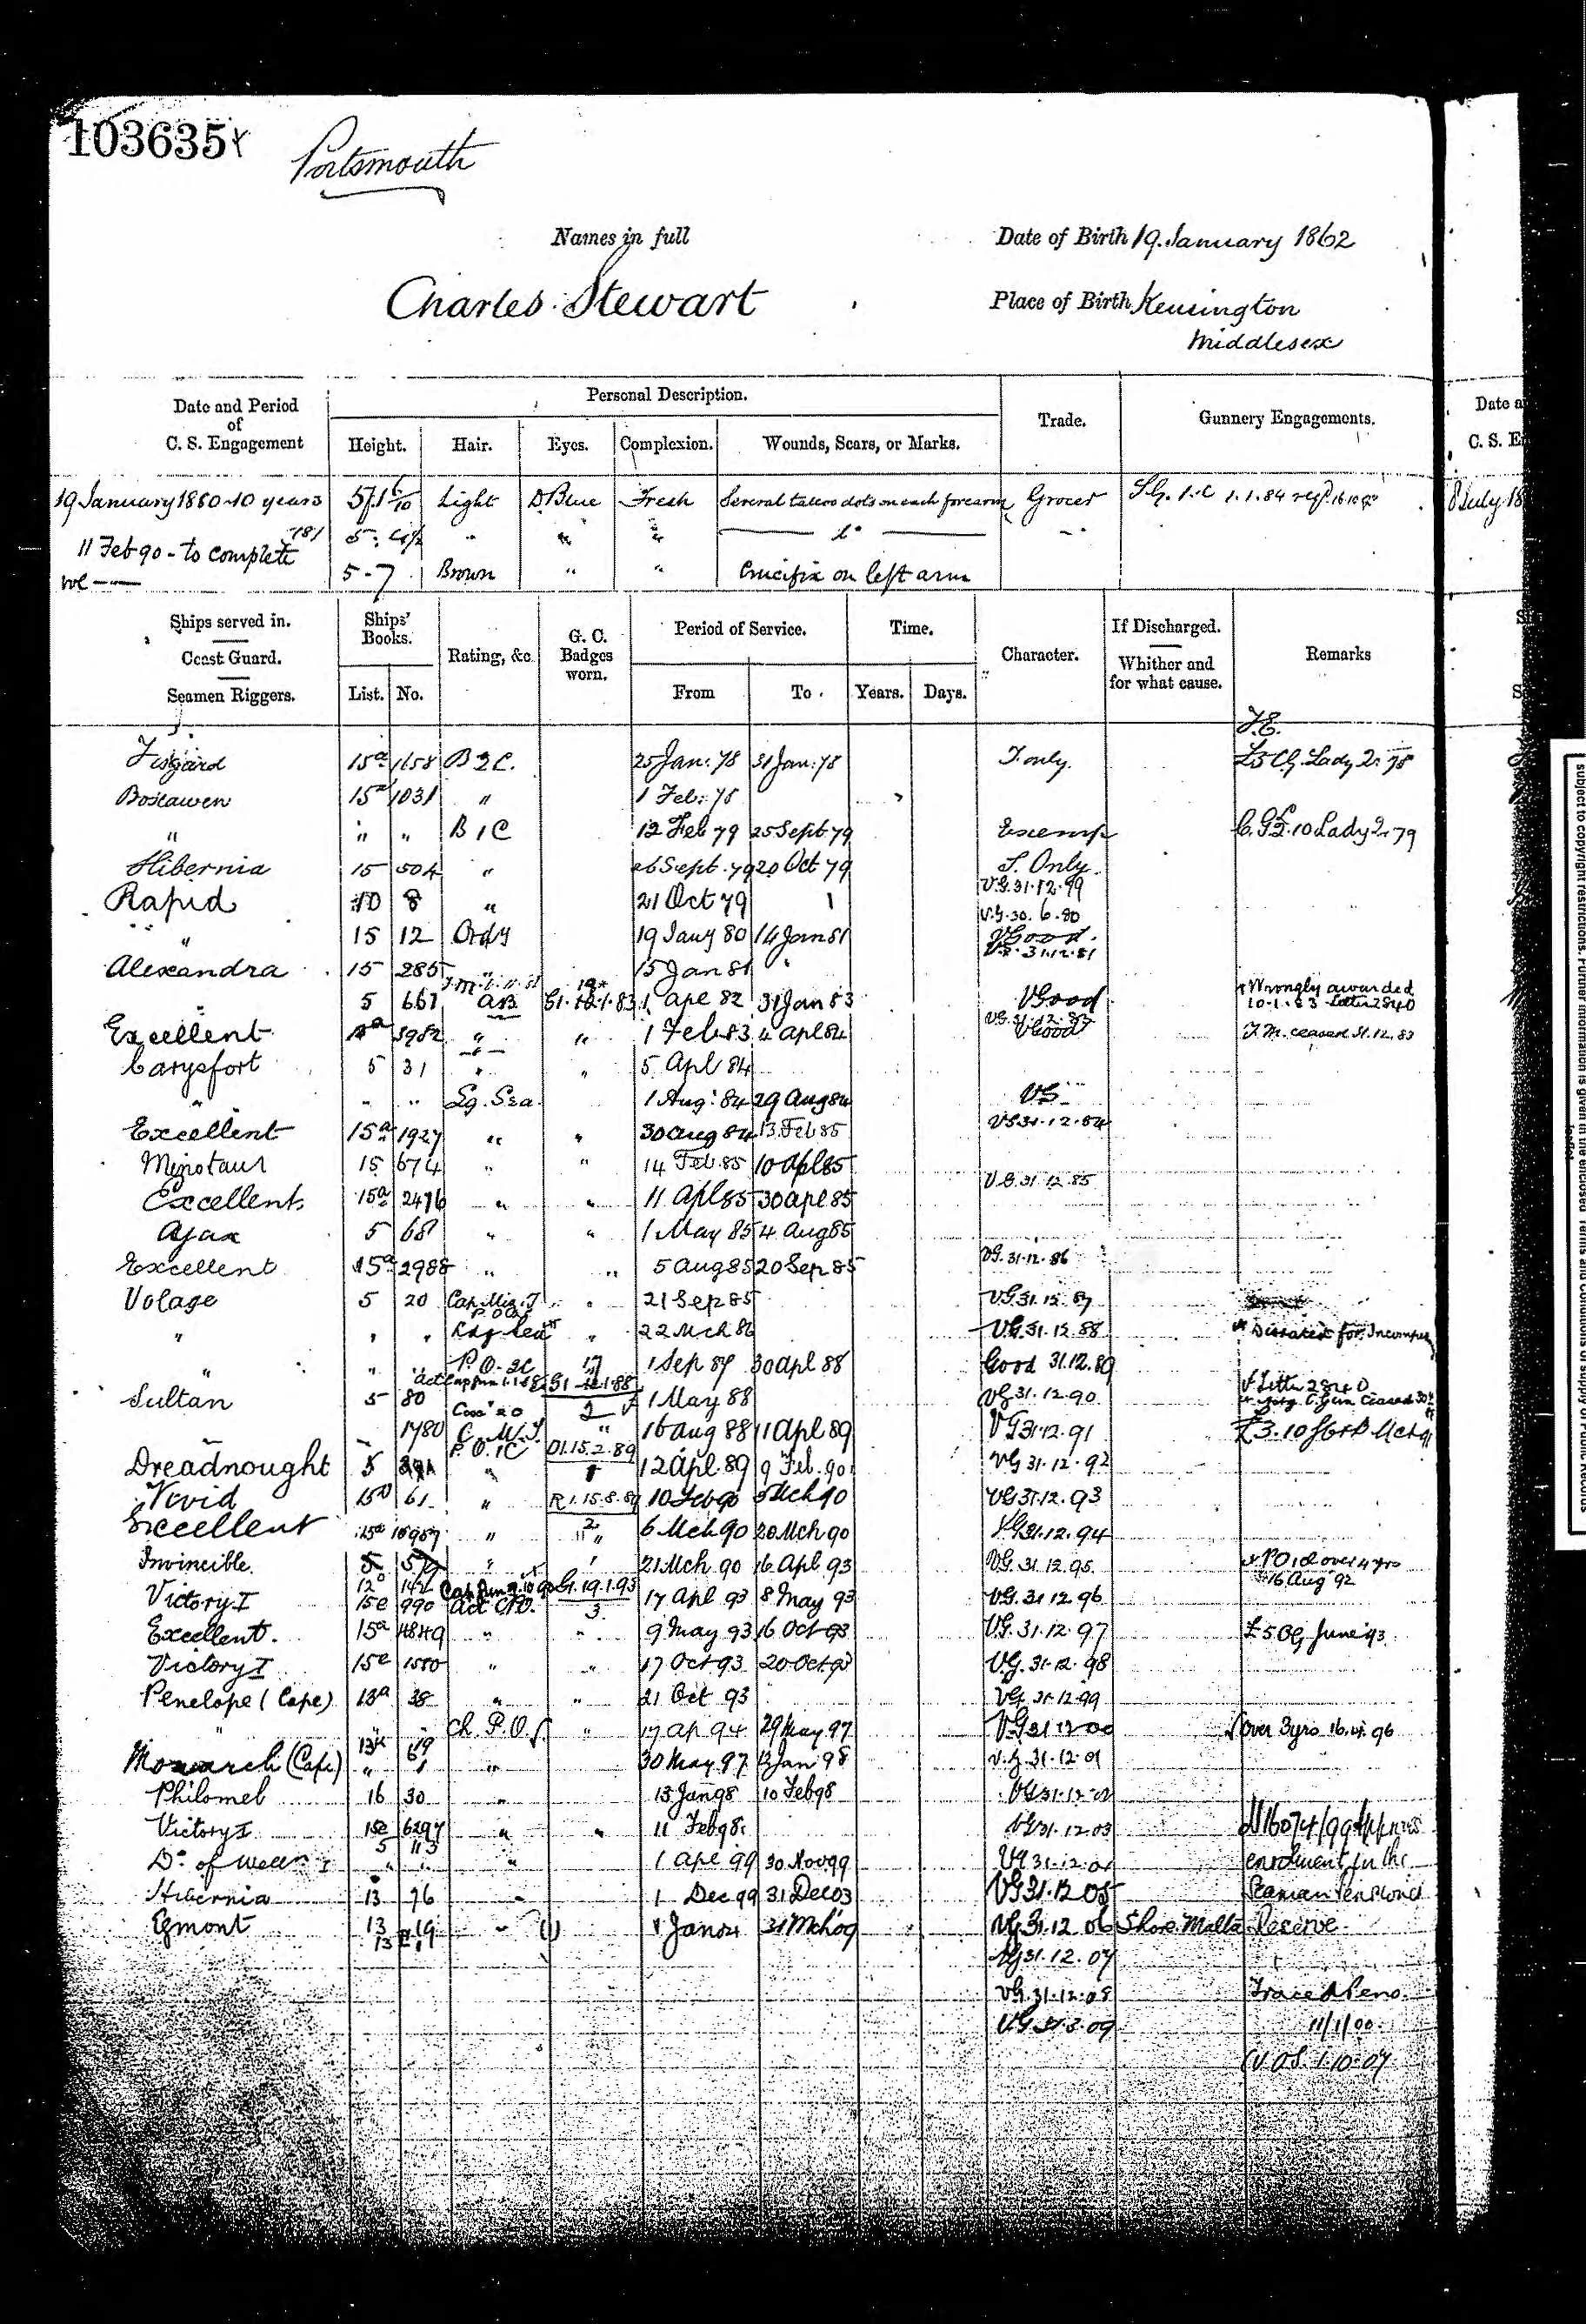 103635
Portsmouth
Names in full
Date of Birth 19. January 1862
Charles Stewart
Place of Birth Kensington
Middlesex
Date and Period of C. S. Engagement
Personal Description.
Height. Hair. Eyes. Complexion. Wounds, Scars, or Marks.
Trade.
Gunnery Engagements.
Date a
C. S. E
19 January 1880 - 10 years Light D. Blue Fresh Several tattoo dots on each forearm Grocer
8 July 18
11 Feb 90 - to complete
5-7 Brown " " Crucifix on left arm
Ships served in. Coast Guard. Seamen Riggers.
Ships' Books. List. No.
Rating, &c.
G. C. Badges worn.
Period of Service. From To
Time. Years. Days.
Character.
If Discharged. Whither and for what cause.
Remarks
Fisgard 15a 1658 B 2 C. 25 Jan: 78 31 Jan: 78 T. only.
Boscawen 15a 1031 " 1 Feb: 78
" " " B 1 C 12 Feb 79 25 Sept 79
Hibernia 15 504 " 26 Sept. 79 20 Oct 79 T. Only.
Rapid 10 8 " 21 Oct 79
V.G. 30. 6. 80
" 15 12 Ordy 19 Jany 80 14 Jan 81 VGood.
V.G. 31.12.81
Alexandra 15 285 " 15 Jan 81
5 661 AB 1 Apl 82 31 Jan 83 VGood Wrongly awarded
10.1.83 Letter 2840
Excellent 5982 " " 1 Feb 83 4 Apl 84 VGood T.M. ceased 31.12.83
Carysfort 5 31 " " 5 Apl 84
" " " Lg. Sea. 1 Aug: 84 29 Aug 84 VG
Excellent 15a 1927 " " 30 Aug 84 13 Feb 85 VG 31.12.84
Minotaur 15 674 " " 14 Feb 85 10 Apl 85
Excellent 15a 2476 " " 11 Apl 85 30 Apl 85 V.G. 31.12.85
Ajax 5 681 " " 1 May 85 4 Aug 85
Excellent 15a 2988 " " 5 Aug 85 20 Sep 85 VG. 31.12.86
Volage 5 20 " 21 Sep 85 VG. 31.12.87
" " " Ldg Sea " 22 Mch 86 VG. 31.12.88
" " " P.O. 2C 1 Sep 87 30 Apl 88 Good 31.12.89
Sultan 5 80 1 May 88 VG 31.12.90 Letter 2840
1780 P.O. 1C 16 Aug 88 11 Apl 89 VG 31.12.91
Dreadnought 5 " 12 Apl. 89 9 Feb. 90 VG 31.12.92
Vivid 15a 61 " R 1.15.8.89 10 Feb 90 5 Mch 90 VG 31.12.93
Excellent 15a " 6 Mch 90 20 Mch 90 VG 31.12.94
Invincible " 21 Mch 90 16 Apl 93 VG. 31.12.95
16 Aug 92
Victory I 15e 990 Act CPO. 3 17 Apl 93 8 May 93 VG. 31.12.96
Excellent. 15a 4849 " " 9 May 93 16 Oct 93 VG. 31.12.97 June 93
Victory I 15e 1580 " " 17 Oct 93 20 Oct 93 VG. 31.12.98
Penelope (Cape) 13a 38 " " 21 Oct 93 VG. 31.12.99
" Ch. P.O. " 17 Ap 94 29 May 97 VG 31.12.00 over 3 yrs 16.4.96
Monarch (Cape) " 30 May 97 12 Jan 98 V.G 31.12.01
Philomel 16 30 " 13 Jan 98 10 Feb 98 VG 31.12.02
Victory I 15e 6297 " " 11 Feb 98 VG 31.12.03
5 113 " 1 Apl 99 30 Nov 99 VG 31.12.04 enrolment in the
Hibernia 13 76 " 1 Dec 99 31 Dec 03 VG 31.12.05 Seaman Pensioner
Egmont 13 19 " 1 Jan 04 31 Mch 09 VG 31.12.06 Shore Malta Reserve
VG 31.12.07
VG. 31.12.08
VG 31.3.09 11/1/00
1.10.07
subject to copyright restrictions. Further information is given in the enclosed 'Terms and Conditions of supply of Public Records'